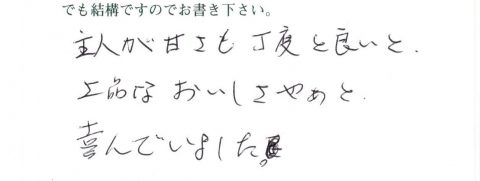 でも結構ですのでお書き下さい。
主人が甘さも丁度と良いと.
上品なおいしさやぁと.
喜んでいました。